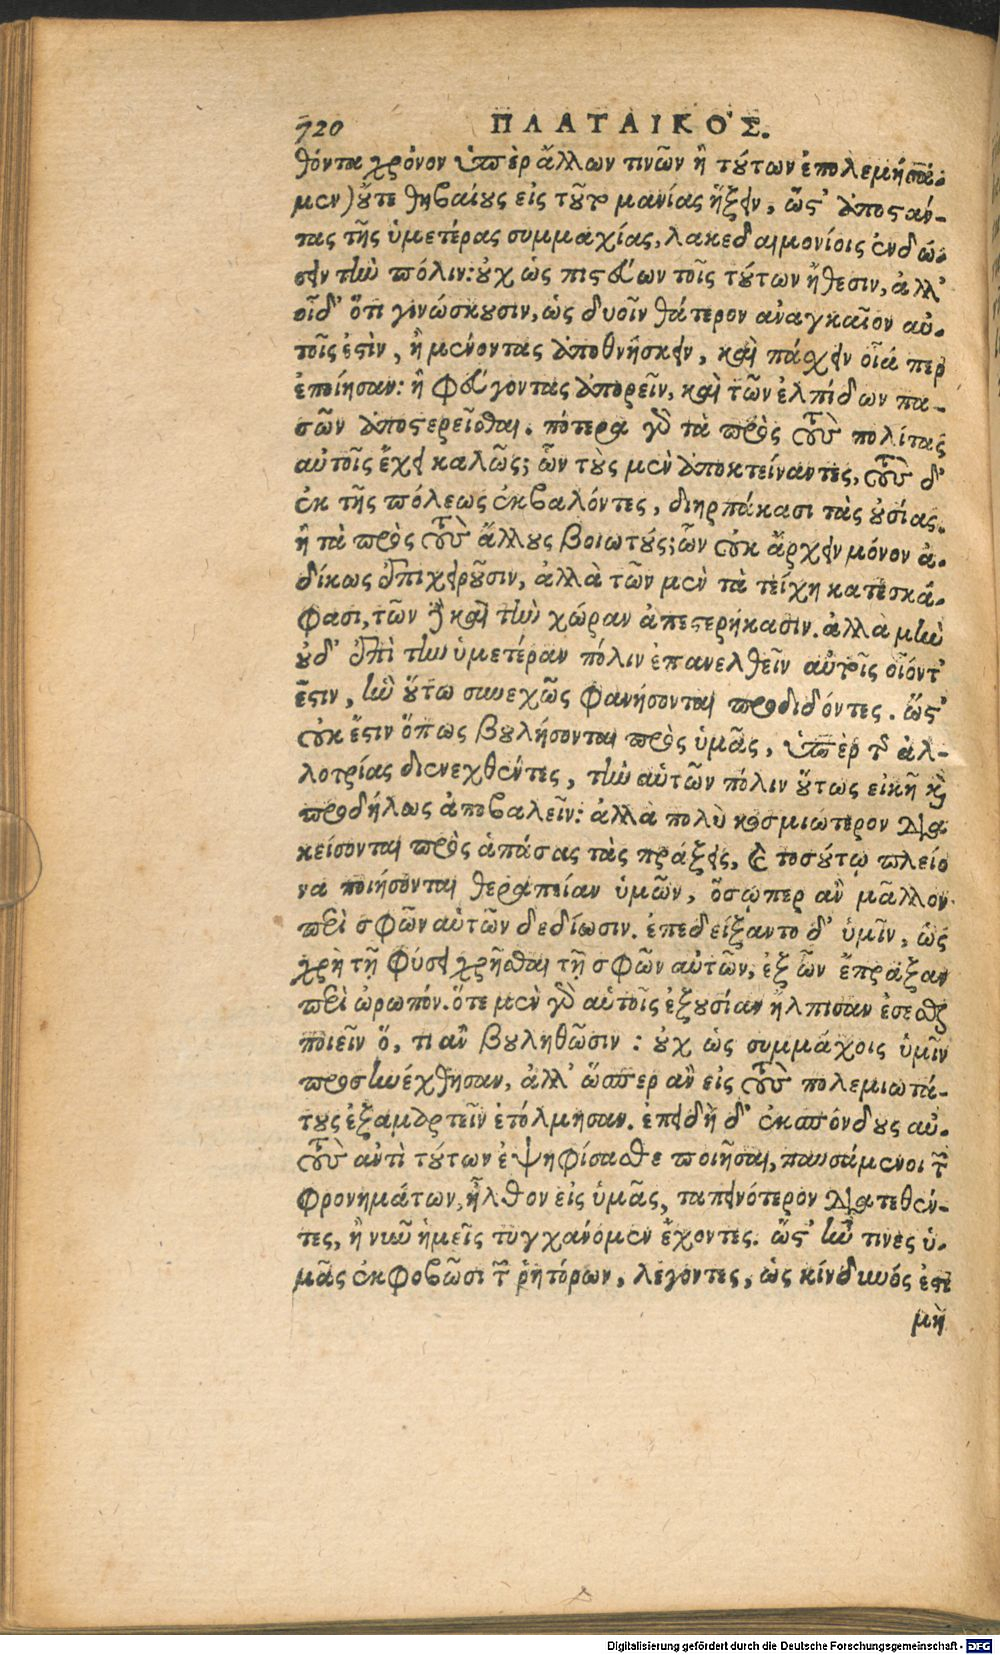 720 ΠΛΑΤΑΙΚΟΣ.
θόντα χρόνον ὑπὲρ ἄλλων τινῶν ἢ τούτων ἐπολεμήσα-
μεν) οὔτε θηβαίους εἰς τοῦτο μανίας ἥξειν, ὥστ' ἀποστάν-
τας τῆς ὑμετέρας συμμαχίας, λακεδαιμονίοις ἐνδώ-
σειν τὴν πόλιν: οὐχ ὡς πιστεύων τοῖς τούτων ἤθεσιν, ἀλλ'
οἶδ' ὅτι γινώσκουσιν, ὡς δυοῖν θάτερον ἀναγκαῖον αὐ-
τοῖς ἐστὶν, ἢ μένοντας ἀποθνήσκειν, καὶ πάσχειν οἷά περ
ἐποίησαν: ἢ φεύγοντας ἀπορεῖν, καὶ τῶν ἐλπίδων πα-
σῶν ἀποστερεῖσθαι. πότερα γὰρ τὰ πρὸς τοὺς πολίτας
αὐτοῖς ἔχει καλῶς; ὧν τοὺς μὲν ἀποκτείναντες, τοὺς δ'
ἐκ τῆς πόλεως ἐκβαλόντες, διηρπάκασι τὰς οὐσίας.
ἢ τὰ πρὸς τοὺς ἄλλους βοιωτούς; ὧν οὐκ ἄρχειν μόνον ἀ-
δίκως ἐπιχειροῦσιν, ἀλλὰ τῶν μὲν τὰ τείχη κατεσκά-
φασι, τῶν δὲ καὶ τὴν χώραν ἀπεστερήκασιν. ἀλλα μὴν
οὐδ' ἐπὶ τὴν ὑμετέραν πόλιν ἐπανελθεῖν αὐτοῖς οἷόντ'
ἐστιν, ἣν οὕτω συνεχῶς φανήσονται προδιδόντες. ὥστ'
οὐκ ἔστιν ὅπως βουλήσονται πρὸς ὑμᾶς, ὑπὲρ τῆς ἀλ-
λοτρίας διενεχθέντες, τὴν αὑτῶν πόλιν οὕτως εἰκῆ καὶ
προδήλως ἀποβαλεῖν: ἀλλὰ πολὺ κοσμιώτερον δια
κείσονται πρὸς ἁπάσας τὰς πράξεις, καὶ τοσούτῳ πλείο
να ποιήσονται θεραπείαν ὑμῶν, ὅσῳπερ ἂν μᾶλλον
περὶ σφῶν αὐτῶν δεδίωσιν. ἐπεδείξαντο δ' ὑμῖν, ὡς
χρὴ τῇ φύσει χρῆσθαι τῇ σφῶν αὐτῶν, ἐξ ὧν ἔπραξαν
περὶ ὠρωπόν. ὅτε μὲν γὰρ αὑτοῖς ἐξουσίαν ἤλπισαν ἔσεσθαι
ποιεῖν ὅ, τι ἂν βουληθῶσιν: οὐχ ὡς συμμάχοις ὑμῖν
προσηνέχθησαν, ἀλλ' ὥσπερ ἂν εἰς τοὺς πολεμιωτά-
τους ἐξαμαρτεῖν ἐτόλμησαν. ἐπειδὴ δ' ἐκσπόνδους αὐ-
τοὺς ἀντὶ τούτων ἐψηφίσασθε ποιῆσαι, παυσάμενοι τῶν
φρονημάτων, ἦλθον εἰς ὑμᾶς, ταπεινότερον διατεθέν-
τες, ἢ νῦν ἡμεῖς τυγχάνομεν ἔχοντες. ὥστ' ἤν τινες ὑ-
μᾶς ἐκφοβῶσι τῶν ῥητόρων, λέγοντες, ὡς κίνδυνός ἐστι
μὴ
Digitalisierung gefördert durch die Deutsche Forschungsgemeinschaft - DFG